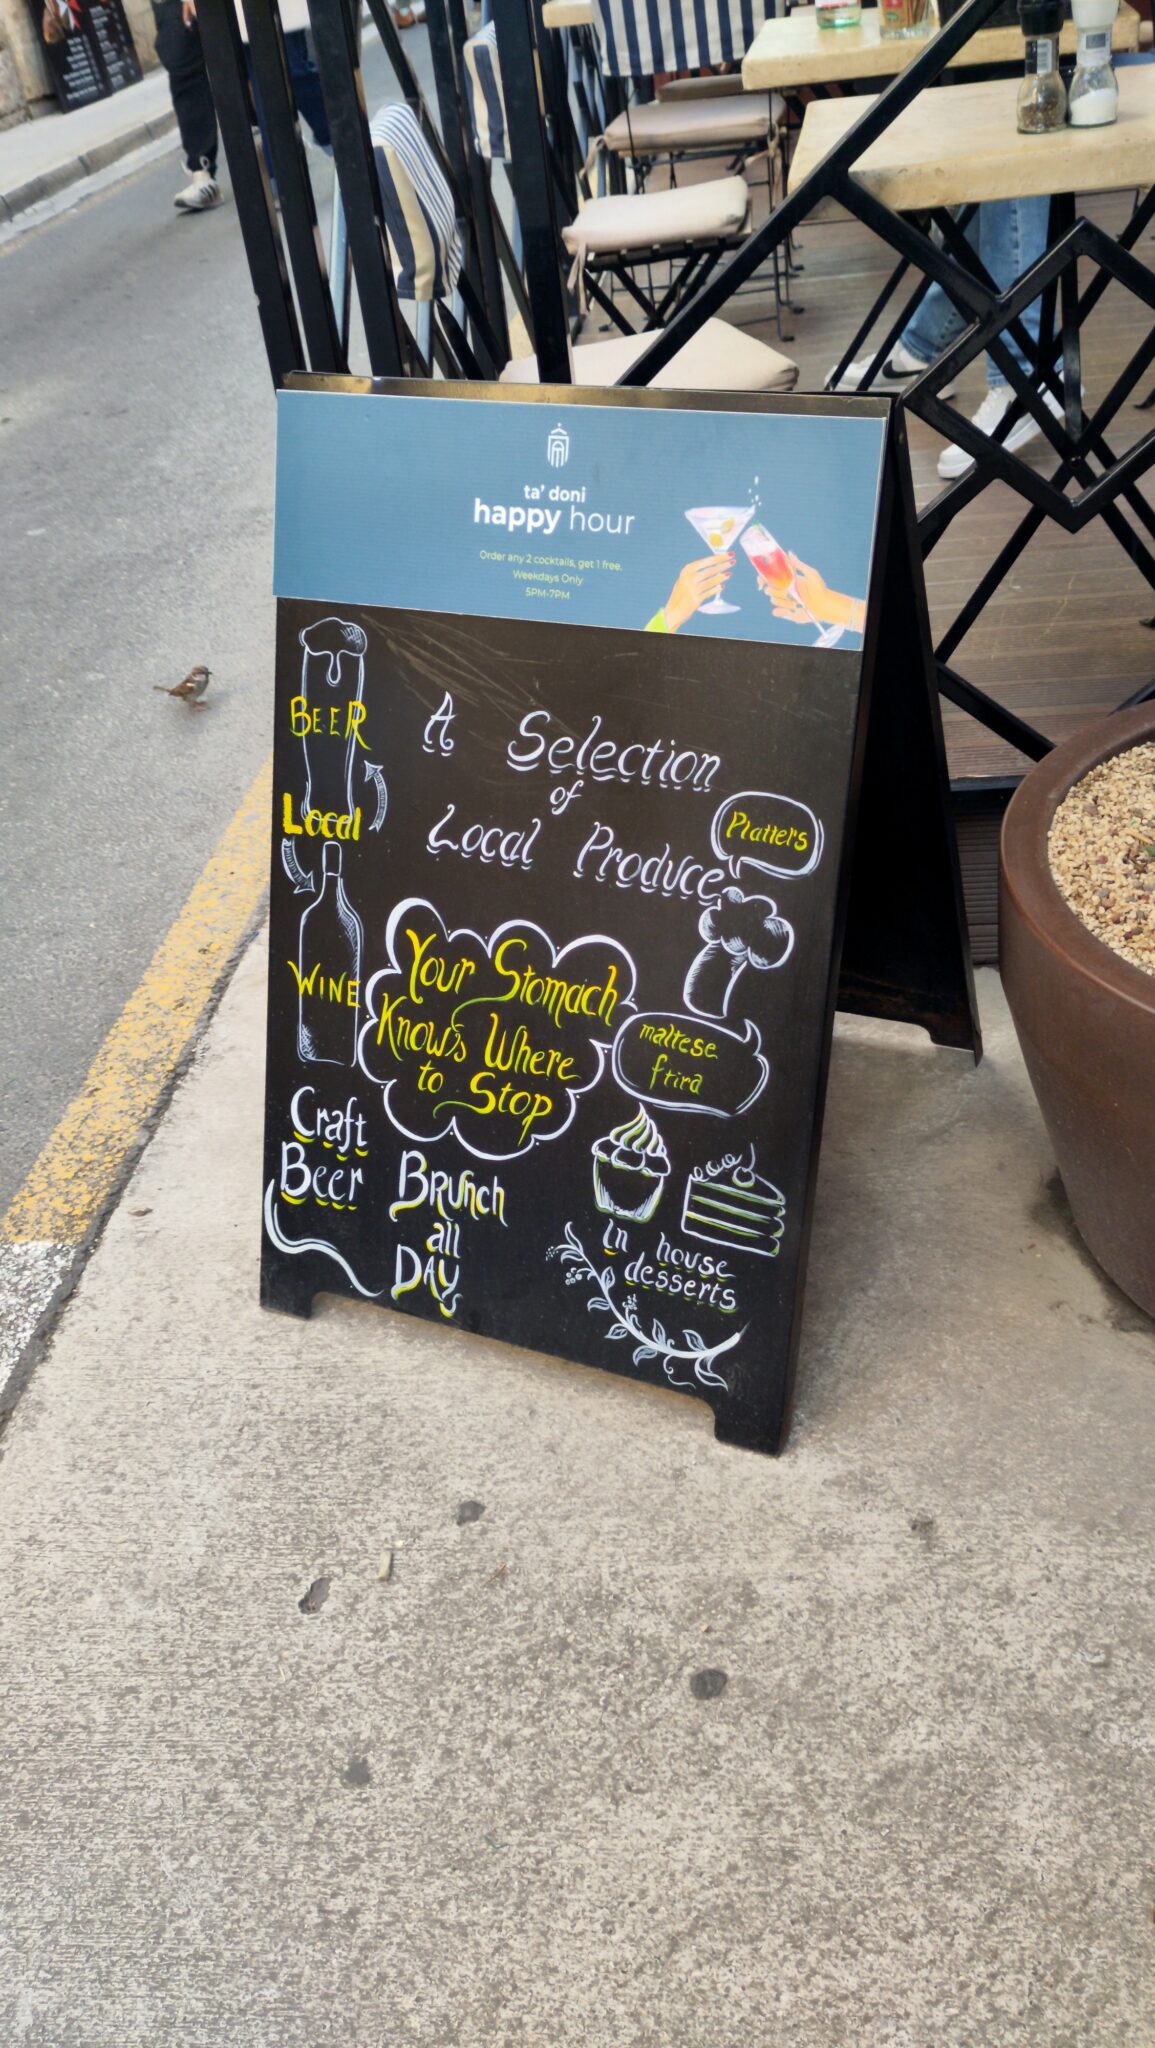 ta' doni
happy hour
Order any 2 cocktails, get 1 free.
Weekdays Only
5PM-7PM
BEER
Local
WINE
A Selection
of
Local Produce
Platters
Your Stomach
Knows Where
to Stop
maltese
ftira
Craft
Beer
BRUnch
all
DAY
In house
desserts